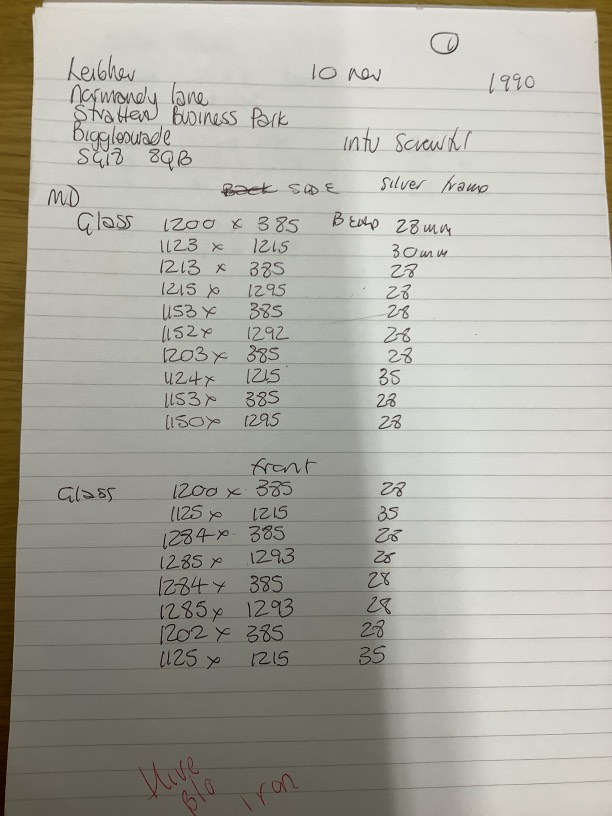 ①
Leibher 10 nov 1990
Normandy lane
Stratton Business Park
Biggleswade
SG18 8QB intu
MD Back SIDE silver frame
Glass 1200 x 385 BEAD 28mm
1123 x 1215 30mm
1213 x 385 28
1215 x 1295 28
1153 x 385 28
1152 x 1292 28
1203 x 385 28
1124 x 1215 35
1153 x 385 28
1150 x 1295 28
front
Glass 1200 x 385 28
1125 x 1215 35
1284 x 385 28
1285 x 1293 28
1284 x 385 28
1285 x 1293 28
1202 x 385 28
1125 x 1215 35
Hive
Blo iron